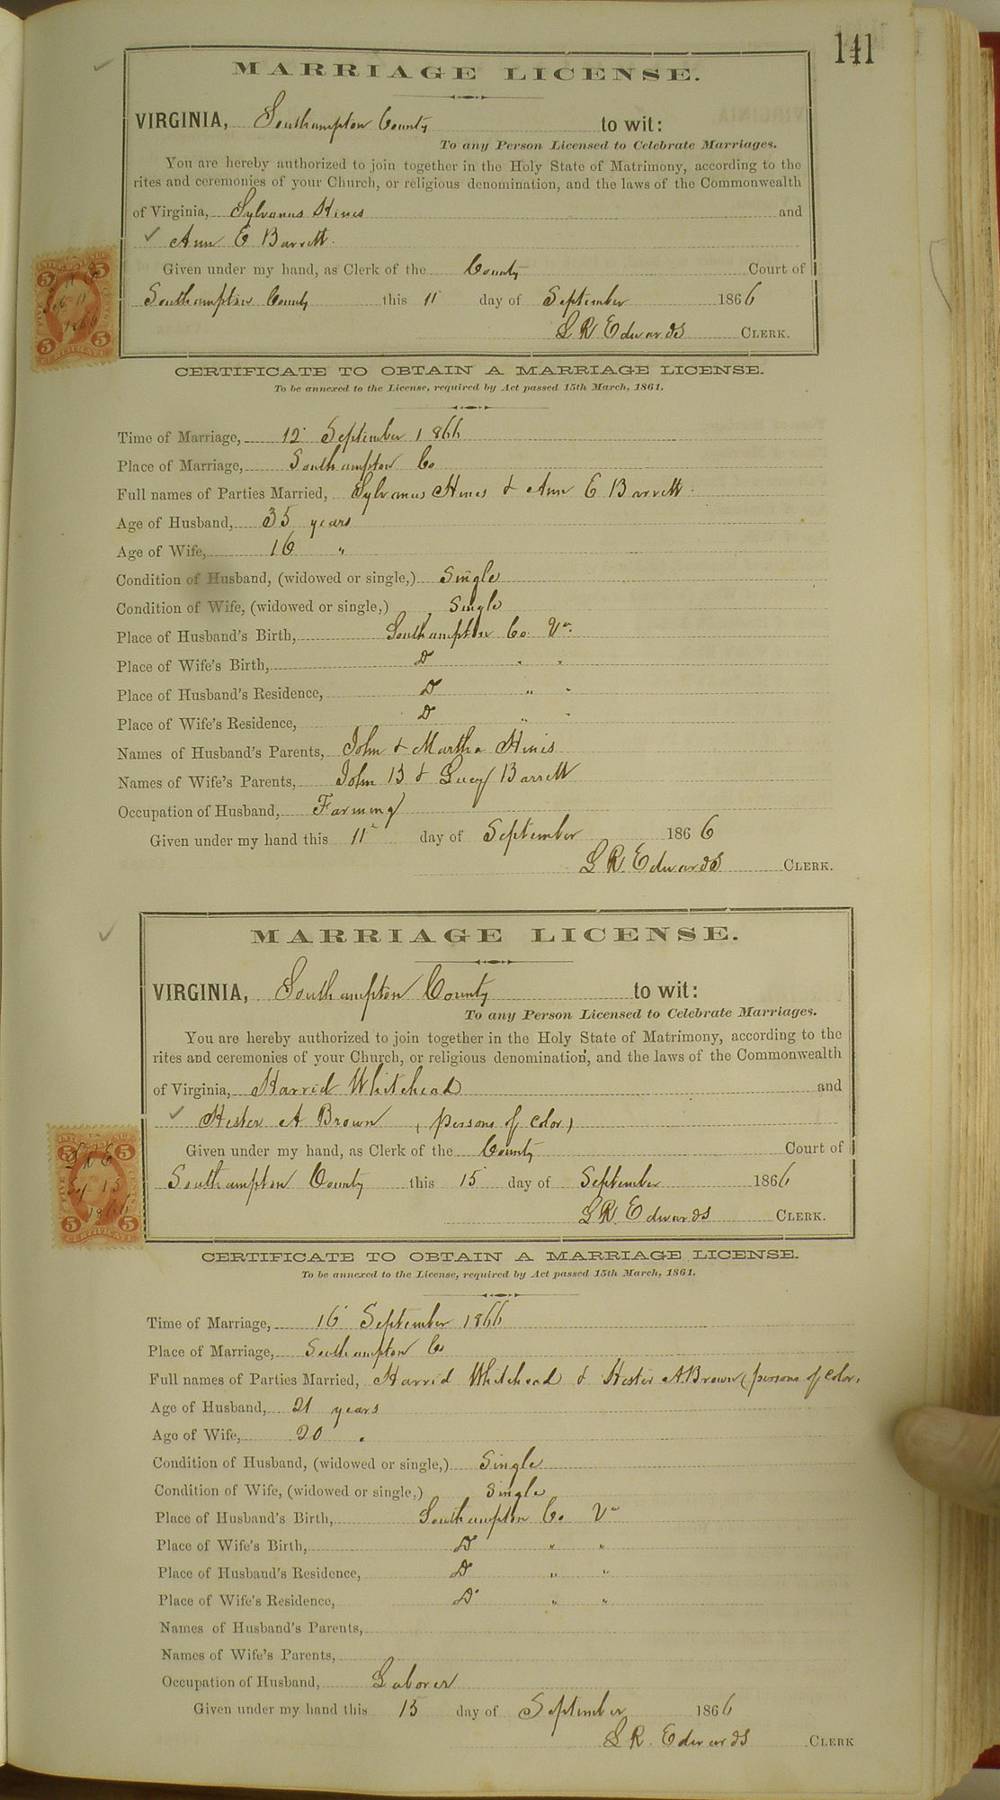 141
MARRIAGE LICENSE.
VIRGINIA, Southampton County to wit:
To any Person Licensed to Celebrate Marriages.
You are hereby authorized to join together in the Holy State of Matrimony, according to the
rites and ceremonies of your Church, or religious denomination, and the laws of the Commonwealth
of Virginia, Sylvanus Hines and
Ann E Barrett.
Given under my hand, as Clerk of the County Court of
Southampton County this 11 day of September 1866
L R Edwards CLERK.
CERTIFICATE TO OBTAIN A MARRIAGE LICENSE.
To be annexed to the License, required by Act passed 15th March, 1861.
Time of Marriage, 12 September 1866
Place of Marriage, Southampton Co
Full names of Parties Married, Sylvanus Hines & Ann E Barrett.
Age of Husband, 35 years
Age of Wife, 16 "
Condition of Husband, (widowed or single,) Single
Condition of Wife, (widowed or single,) Single
Place of Husband's Birth, Southampton Co. Va.
Place of Wife's Birth, D " "
Place of Husband's Residence, D " "
Place of Wife's Residence, D " "
Names of Husband's Parents, John & Martha Hines
Names of Wife's Parents, John B & Lucy Barrett
Occupation of Husband, Farming
Given under my hand this 11 day of September 1866
L R. Edwards CLERK.
MARRIAGE LICENSE.
VIRGINIA, Southampton County to wit:
To any Person Licensed to Celebrate Marriages.
You are hereby authorized to join together in the Holy State of Matrimony, according to the
rites and ceremonies of your Church, or religious denomination, and the laws of the Commonwealth
of Virginia, Harrid Whitehead and
Hester A Brown (persons of color)
Given under my hand, as Clerk of the County Court of
Southampton County this 15 day of September 1866
L R. Edwards CLERK.
CERTIFICATE TO OBTAIN A MARRIAGE LICENSE.
To be annexed to the License, required by Act passed 15th March, 1861.
Time of Marriage, 16 September 1866
Place of Marriage, Southampton Co
Full names of Parties Married, Harrid Whitehead & Hester A Brown (persons of color,
Age of Husband, 21 years
Age of Wife, 20 "
Condition of Husband, (widowed or single,) Single
Condition of Wife, (widowed or single,) Single
Place of Husband's Birth, Southampton Co Va
Place of Wife's Birth, D " "
Place of Husband's Residence, D " "
Place of Wife's Residence, D " "
Names of Husband's Parents,
Names of Wife's Parents,
Occupation of Husband, Laborer
Given under my hand this 15 day of September 1866
L R. Edwards CLERK